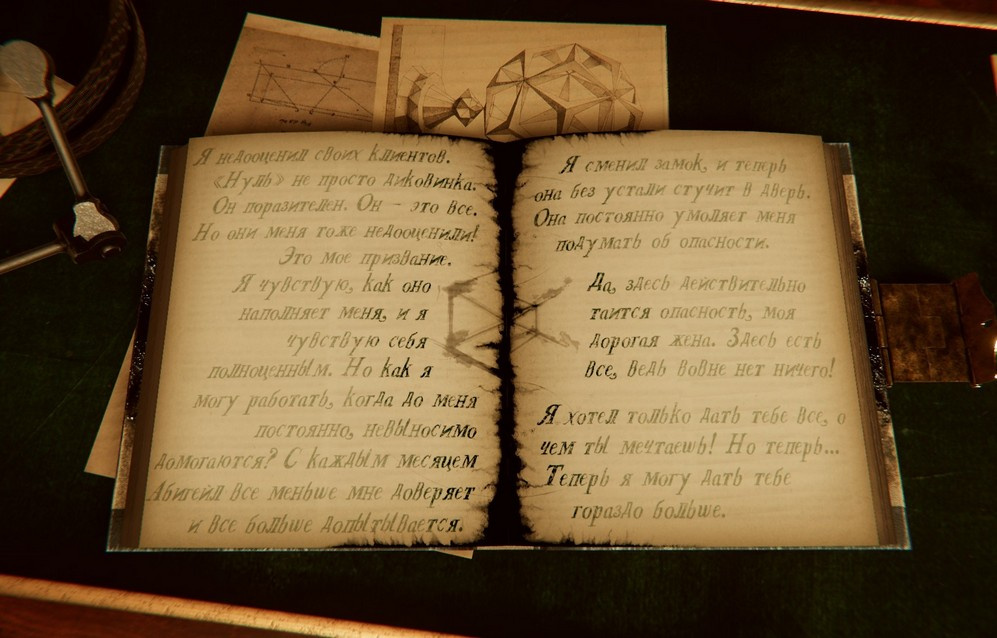 Я недооценил своих клиентов.
«Нуль» не просто диковинка.
Он поразителен. Он – это все.
Но они меня тоже недооценили!
Это мое призвание.
Я чувствую, как оно
наполняет меня, и я
чувствую себя
полноценным. Но как я
могу работать, когда до меня
постоянно, невыносимо
домогаются? С каждым месяцем
Абигейл все меньше мне доверяет
и все больше допытывается.
Я сменил замок, и теперь
она без устали стучит в дверь.
Она постоянно умоляет меня
подумать об опасности.
Да, здесь действительно
таится опасность, моя
дорогая жена. Здесь есть
все, ведь вовне нет ничего!
Я хотел только дать тебе все, о
чем ты мечтаешь! Но теперь...
Теперь я могу дать тебе
гораздо больше.